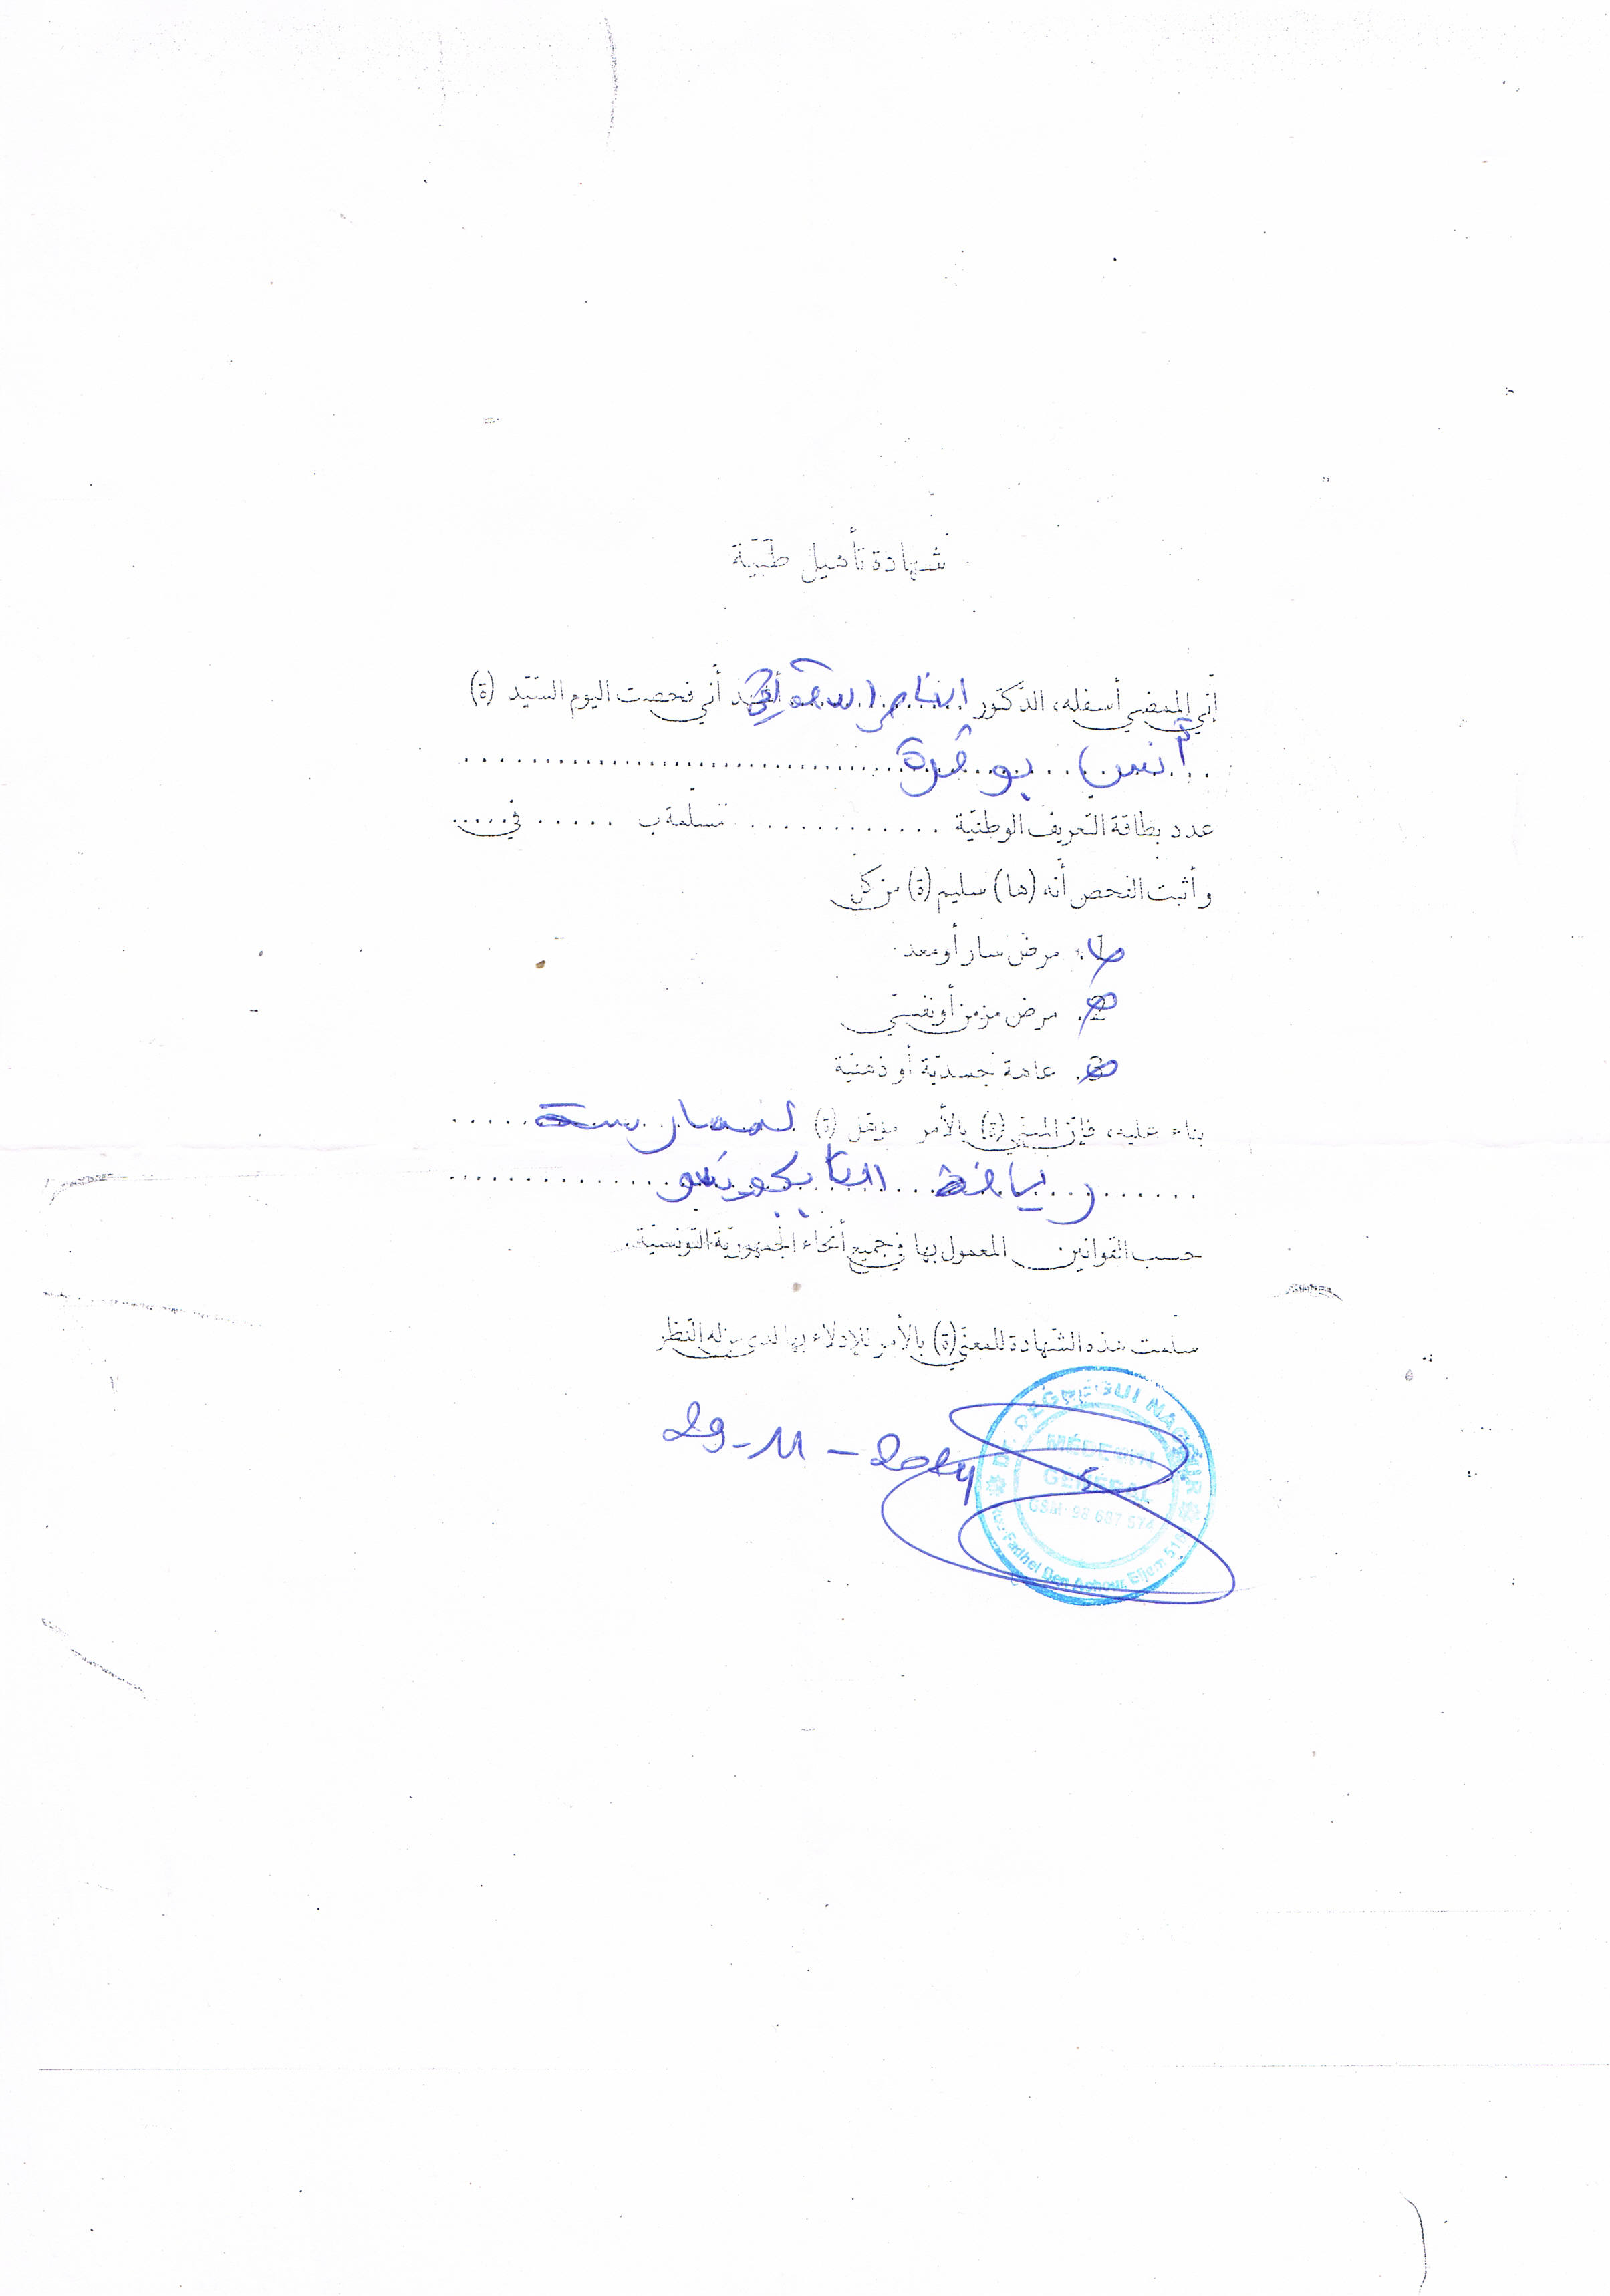 شهادة تأهيل طبّيّة
إنّي الممضي أسفله، الدّكتور الناصر الدقرافي أشهد أني فحصت اليوم السّيّد (ة)
أنس بوقرة
عدد بطاقة التّعريف الوطنيّة ............ مسلمة ب ..... في .....
و أثبت الفحص أنّه (ها) سليم (ة) من كلّ
1. مرض سار أو معد
2. مرض مزمن أو نفسيّ
3. عاهة جسديّة أو ذهنيّة
بناء عليه، فإنّ المعني (ة) بالأمر مؤهّل (ة) لممارسة
رياضة التايكوندو
حسب القوانين المعمول بها في جميع أنحاء الجمهوريّة التّونسيّة.
سلّمت هذه الشّهادة للمعنيّ (ة) بالأمر للإدلاء بها لدى من له النّظر
29-11-2024
MÉDECIN
GÉNÉRAL
GSM: 98 687 574